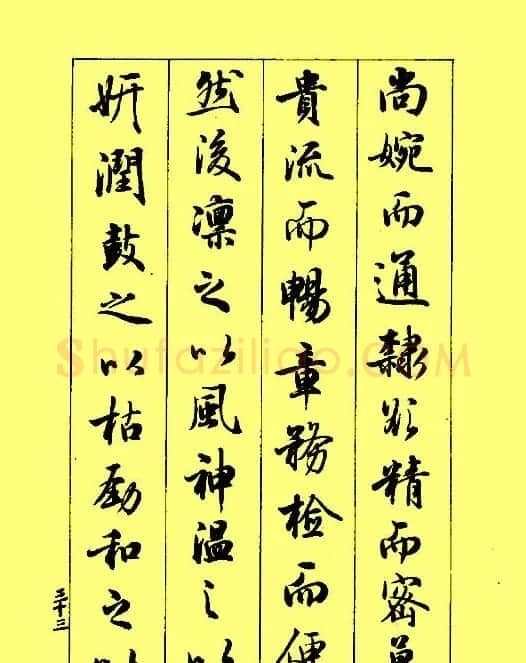 尚婉而通隸欲精而密
貴流而暢章務檢而便
然後凛之以風神温之以
妍潤鼓之以枯勁和之以
三十三
Shufaziliao.COM